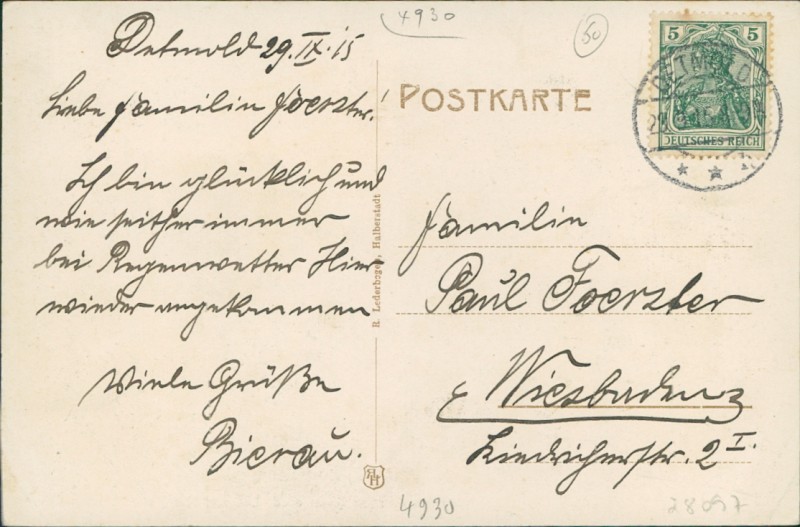 4930
50
Detmold 29.IX.15
Liebe Familie Foerster!
Ich bin glücklich und
wie seither immer
bei Regenwetter Hier
wieder angekommen
Viele Grüße
Bierau.
POSTKARTE
5 5
DEUTSCHES REICH
DETMOLD
R. Lederbogen, Halberstadt
Familie
Paul Foerster
Wiesbaden
str. 2 I.
4930
28097